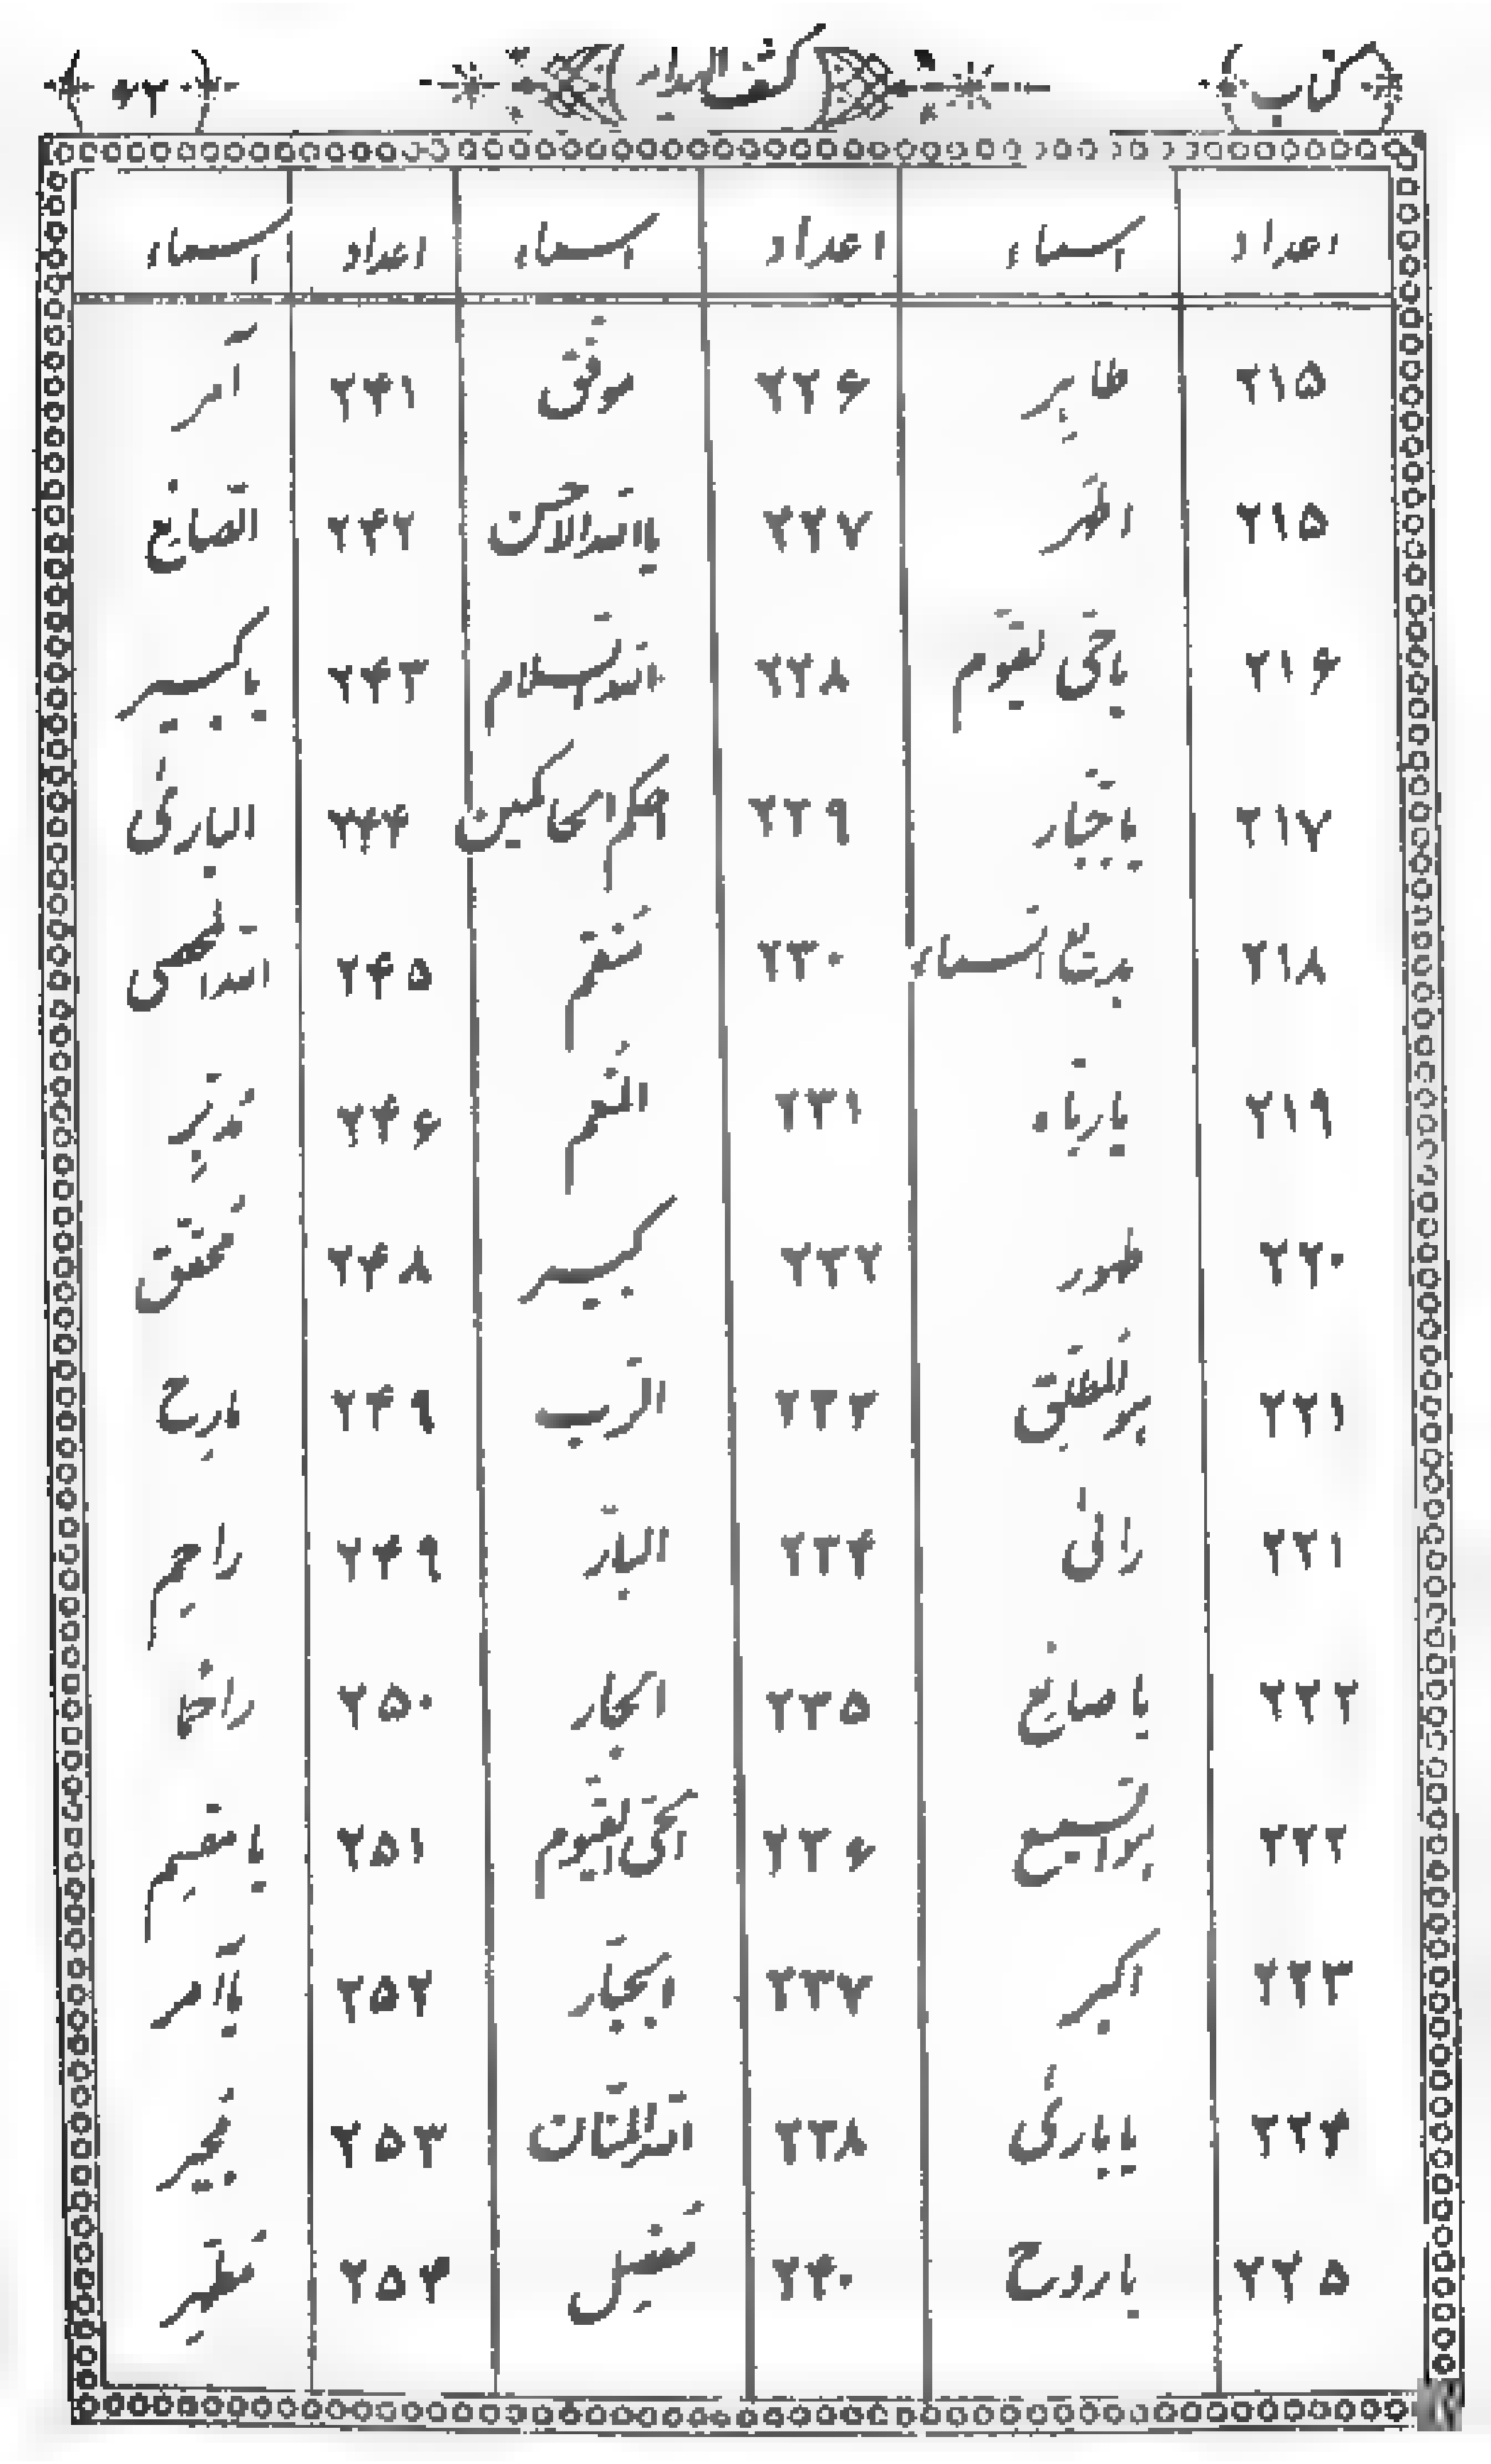 کتاب کشف المدار ۶۲
اعداد اسماء اعداد اسماء اعداد اسماء
۲۱۵ طاہر ۲۲۶ موفق ۲۴۱ آمر
۲۱۵ اطہر ۲۲۷ یا اللہ الاحسن ۲۴۲ الصانع
۲۱۶ یا حی قیوم ۲۲۸ اللہ السلام ۲۴۳ یا کبیر
۲۱۷ یا جبار ۲۲۹ احکم الحاکمین ۲۴۴ الباریٔ
۲۱۸ بدیع السماء ۲۳۰ منتقم ۲۴۵ اللہ المحصی
۲۱۹ یا رباہ ۲۳۱ المنعم ۲۴۶ مدبر
۲۲۰ طہور ۲۳۲ کبیر ۲۴۸ محقق
۲۲۱ ہو المطلق ۲۳۳ الرب ۲۴۹ مادح
۲۲۱ رائی ۲۳۴ البار ۲۴۹ راحم
۲۲۲ یا صانع ۲۳۵ الجار ۲۵۰
۲۲۲ ہو السمیع ۲۳۶ الحی القیوم ۲۵۱ یا مقیم
۲۲۳ اکبر ۲۳۷ الجبار ۲۵۲ یا آمر
۲۲۴ یا باریٔ ۲۳۸ اللہ المنان ۲۵۳ مجیر
۲۲۵ یا روح ۲۴۰ مفضل ۲۵۴ مطہر